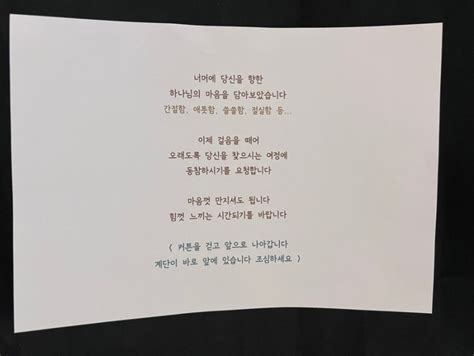 너머에 당신을 향한
하나님의 마음을 담아보았습니다
간절함, 애틋함, 쓸쓸함, 절실함 등...
이제 걸음을 떼어
오래도록 당신을 찾으시는 여정에
동참하시기를 요청합니다
마음껏 만지셔도 됩니다
힘껏 느끼는 시간되기를 바랍니다
( 커튼을 걷고 앞으로 나아갑니다
계단이 바로 앞에 있습니다 조심하세요 )